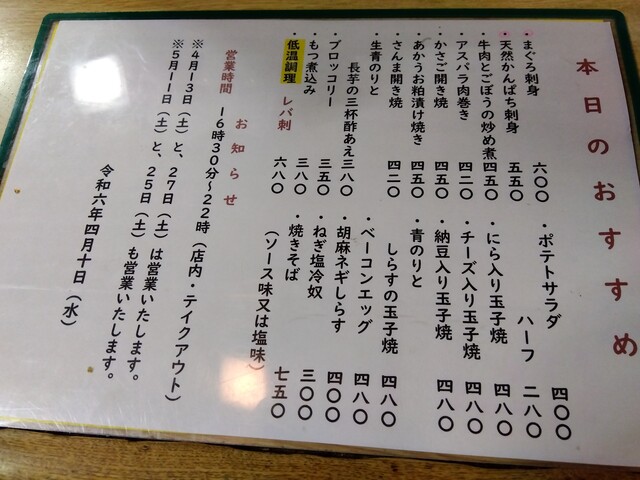 本日のおすすめ
・まぐろ刺身 六〇〇
・天然かんぱち刺身 五五〇
・牛肉とごぼうの炒め煮 四五〇
・アスパラ肉巻き 四二〇
・かさご開き焼 四五〇
・あかうお粕漬け焼き 四五〇
・さんま開き焼 四二〇
・生青のりと
長芋の三杯酢あえ 三八〇
・ブロッコリー 三五〇
・もつ煮込み 三八〇
低温調理 レバ刺 六八〇
・ポテトサラダ 四〇〇
ハーフ 二八〇
・にら入り玉子焼 四八〇
・チーズ入り玉子焼 四八〇
・納豆入り玉子焼 四八〇
・青のりと
しらすの玉子焼 四八〇
・ベーコンエッグ 四八〇
・胡麻ネギしらす 四〇〇
・ねぎ塩冷奴 三〇〇
・焼きそば
（ソース味又は塩味） 七五〇
お知らせ
営業時間 16時30分～22時（店内・テイクアウト）
※4月13日（土）と、27日（土）は営業いたします。
※5月11日（土）と、25日（土）も営業いたします。
令和六年四月十日（水）